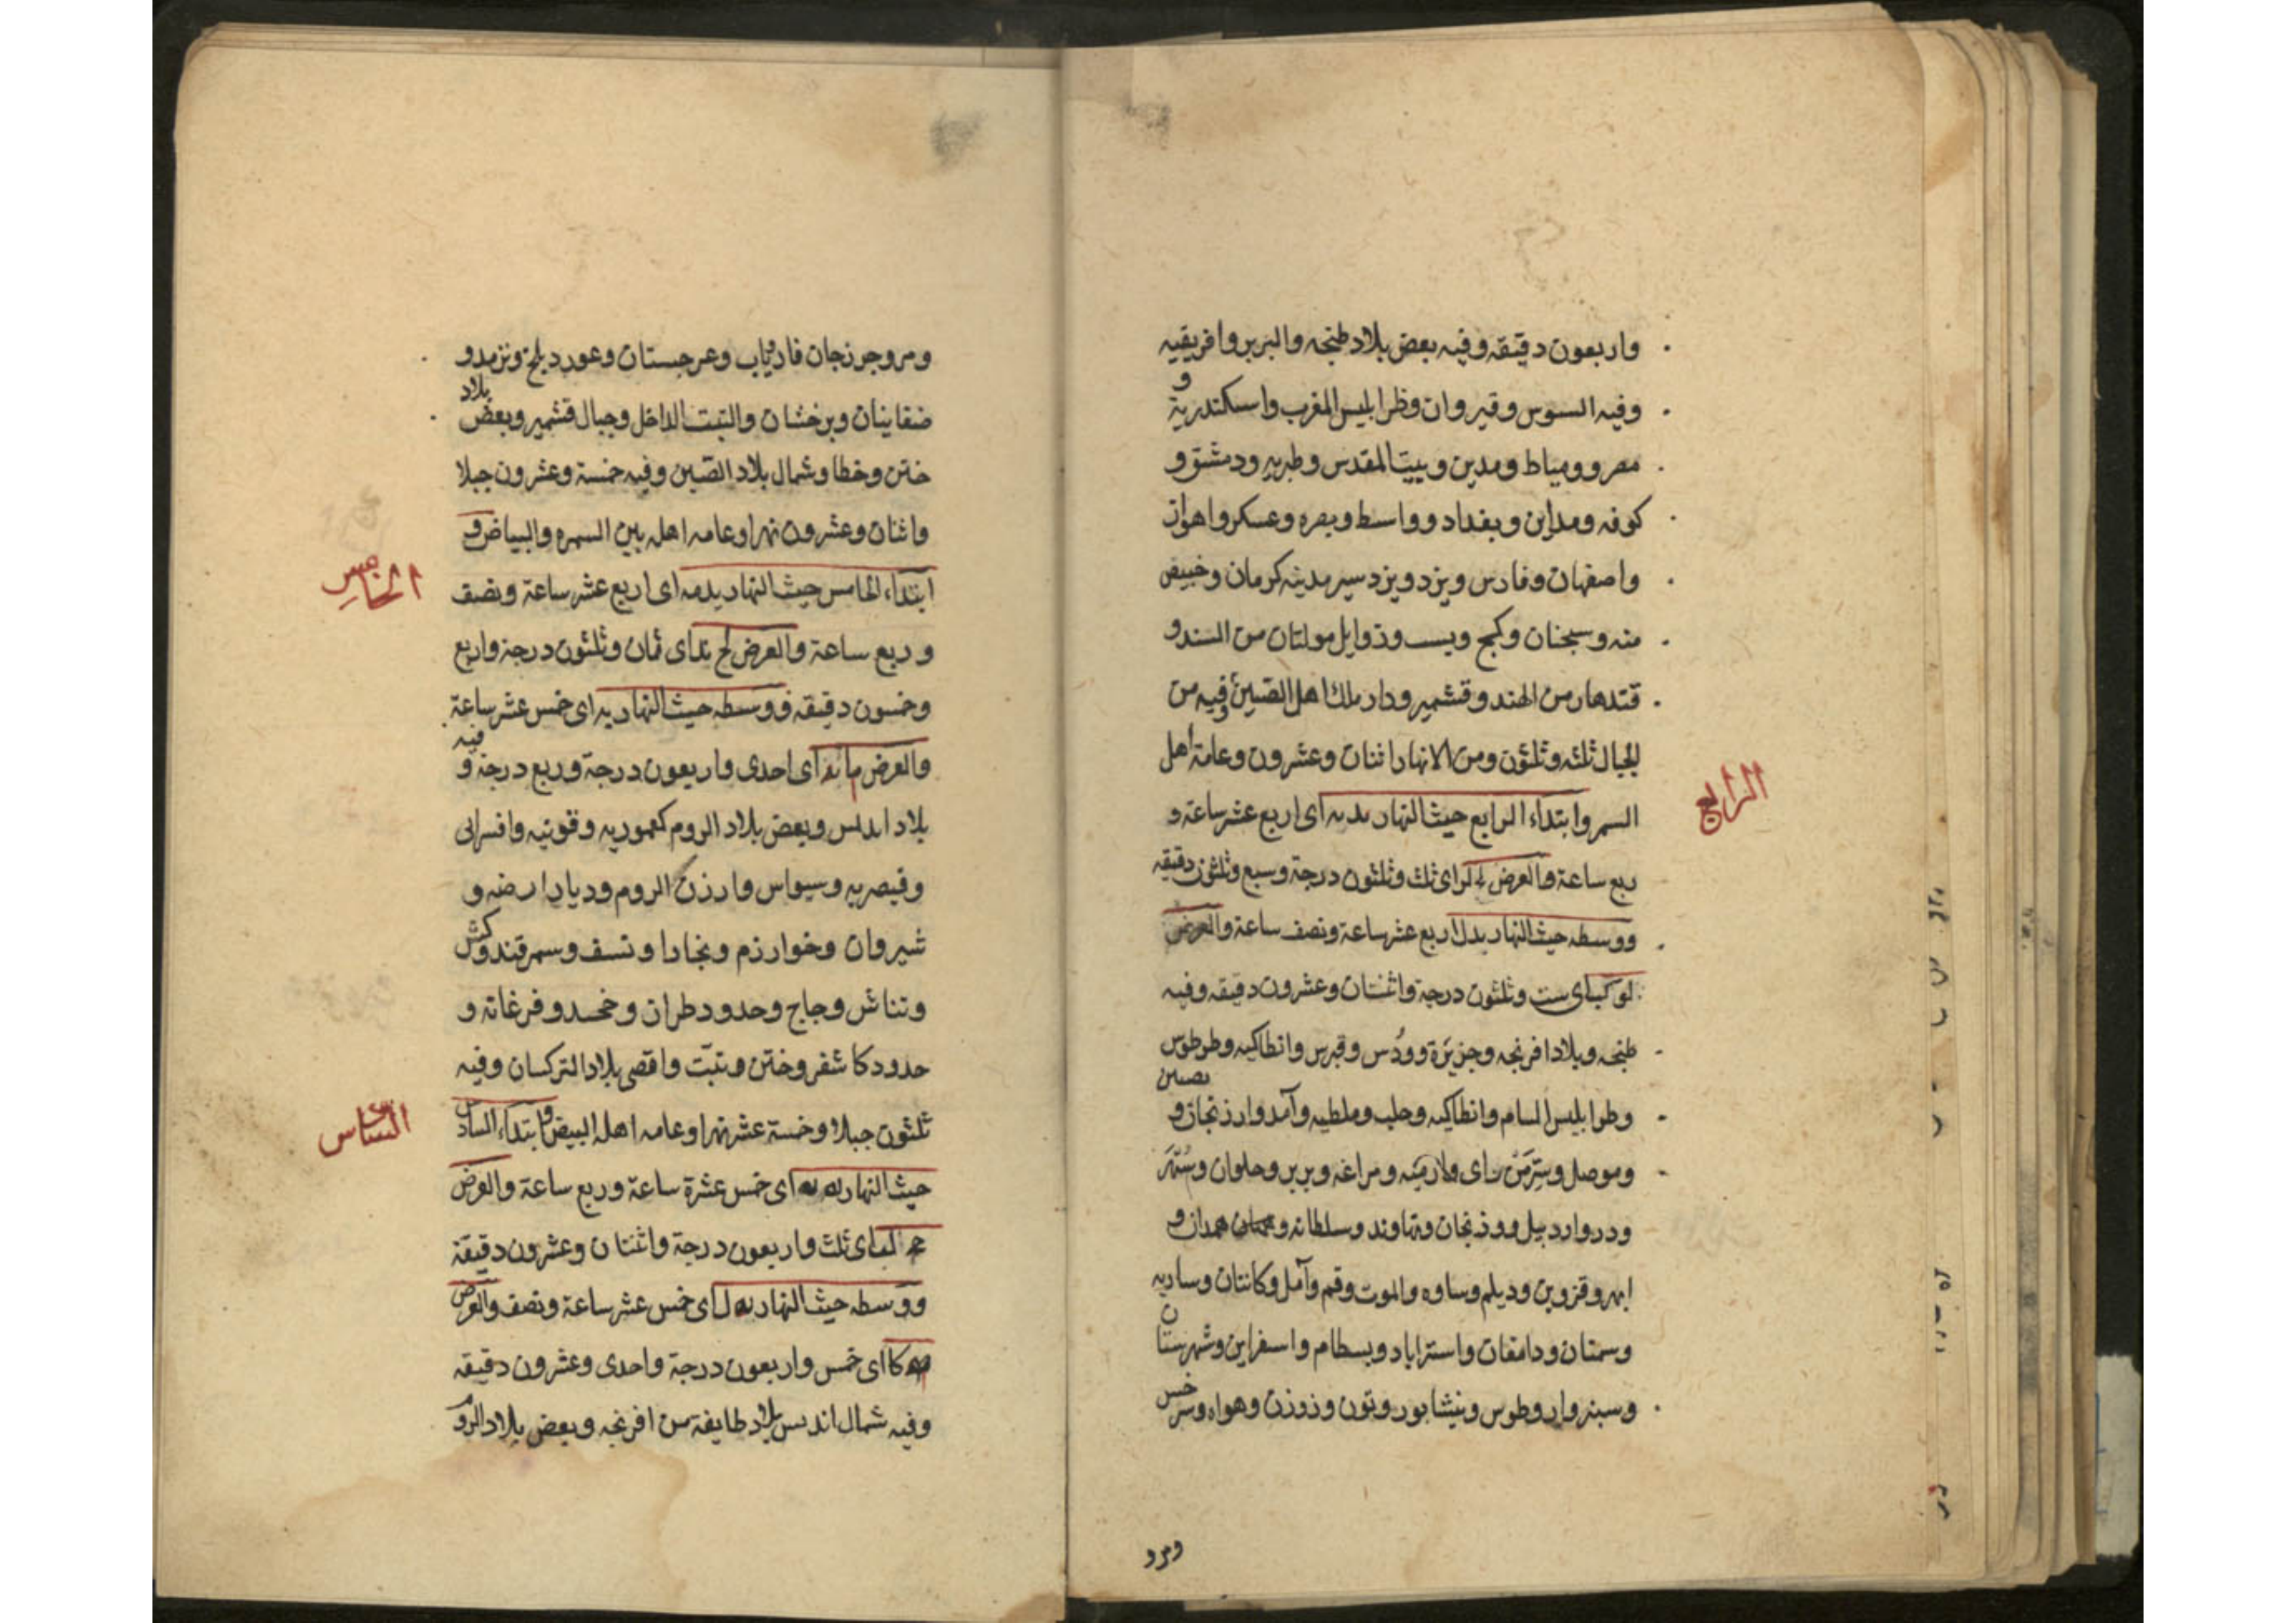 واربعون دقيقه وفيه بعض بلاد طنجه والبربر وافريقيه
وفيه السوس وقيروان وطرابليس المغرب واسكندرية و
مصر وومياط ومدين وبيت المقدس وطبريه ودمشق و
كوفه ومداين وبغداد وواسط وبصره وعسكر واهواز
واصفهان وفارس ويزد ويزدسير مدينه كرمان وخبيص
منه وسجنان وكيج وبست وذوايل مولتان من السند و
قندهار من الهند وقشمير ودار ملك اهل الصين وفيه من
الجبال ثلثه وثلثون ومن الانهار اثنان وعشرون وعامة اهل
الرابع
السمر وابتداء الرابع حيث النهار يد يه اى اربع عشر ساعة و
ربع ساعة والعرض لج لز اى ثلث وثلثون درجة وسبع وثلثون دقيقه
ووسطه حيث النهار يد ل اربع عشر ساعة ونصف ساعة والعرض
لو كب اى ست وثلثون درجة واثنتان وعشرون دقيقه وفيه
طنجه وبلاد افرنجه وجزيرة وودس وقبرس وانطاكيه وطرطوس
وطرابليس الشام وانطاكيه وحلب وملطيه وآمد وارزنجان و نصيبن
وموصل وسر من راى ولارمنه ومراغه وبريز وحلوان وشتر
ودر واردبيل ووزنجان ونهاوند وسلطانه وهمدان و
ابهر وقزوين وديلم وساوه والموت وقم وآمل وكانتان وساريه
وسمنان ودامغان واستراباد وبسطام واسفراين وشهرستان
وسبزوار وطوس ونيشابور وتون وزوزن وهواه وسرخس
ومرو
ومرو جرزجان فارياب وعرجستان وعور دبلخ وترمد و
ضقاينان وبرخشان والتبت الداخل وجبال قشمير وبعض بلاد
ختن وخطا وشمال بلاد الصين وفيه خمسة وعشرون جبلا
واثنان وعشرون نهرا وعامه اهله بين السمره والبياض و
الخامس
ابتداء الخامس حيث النهار يد مه اى اربع عشر ساعة ونصف
وربع ساعة والعرض لح ند اى ثمان وثلثون درجة واربع
وخمسون دقيقه ووسطه حيث النهار يه اى خمس عشر ساعة
والعرض ما يه اى احدى واربعون درجة وربع درجة و فيه
بلاد اندلس وبعض بلاد الروم كعموريه وقونيه وافسراى
وقيصريه وسيواس وارزن الروم وديار ارضه و
شيروان وخوارزم وبخارا ونسف وسمرقند وكش
وتناش وجاج وحدود طران وخجند وفرغانه و
حدود كاشغر وختن وتبت واقصى بلاد التركسان وفيه
السادس
ثلثون جبلا وخمسة عشر نهرا وعامه اهله البيض وابتداء السادس
حيث النهار يه يه اى خمس عشرة ساعة وربع ساعة والعرض
مج كب اى ثلث واربعون درجة واثنتان وعشرون دقيقة
ووسطه حيث النهار يه ل اى خمس عشر ساعة ونصف والعرض
مه كا اى خمس واربعون درجة واحدى وعشرون دقيقه
وفيه شمال اندلس بلاد طايفة من افرنجه وبعض بلاد الروم